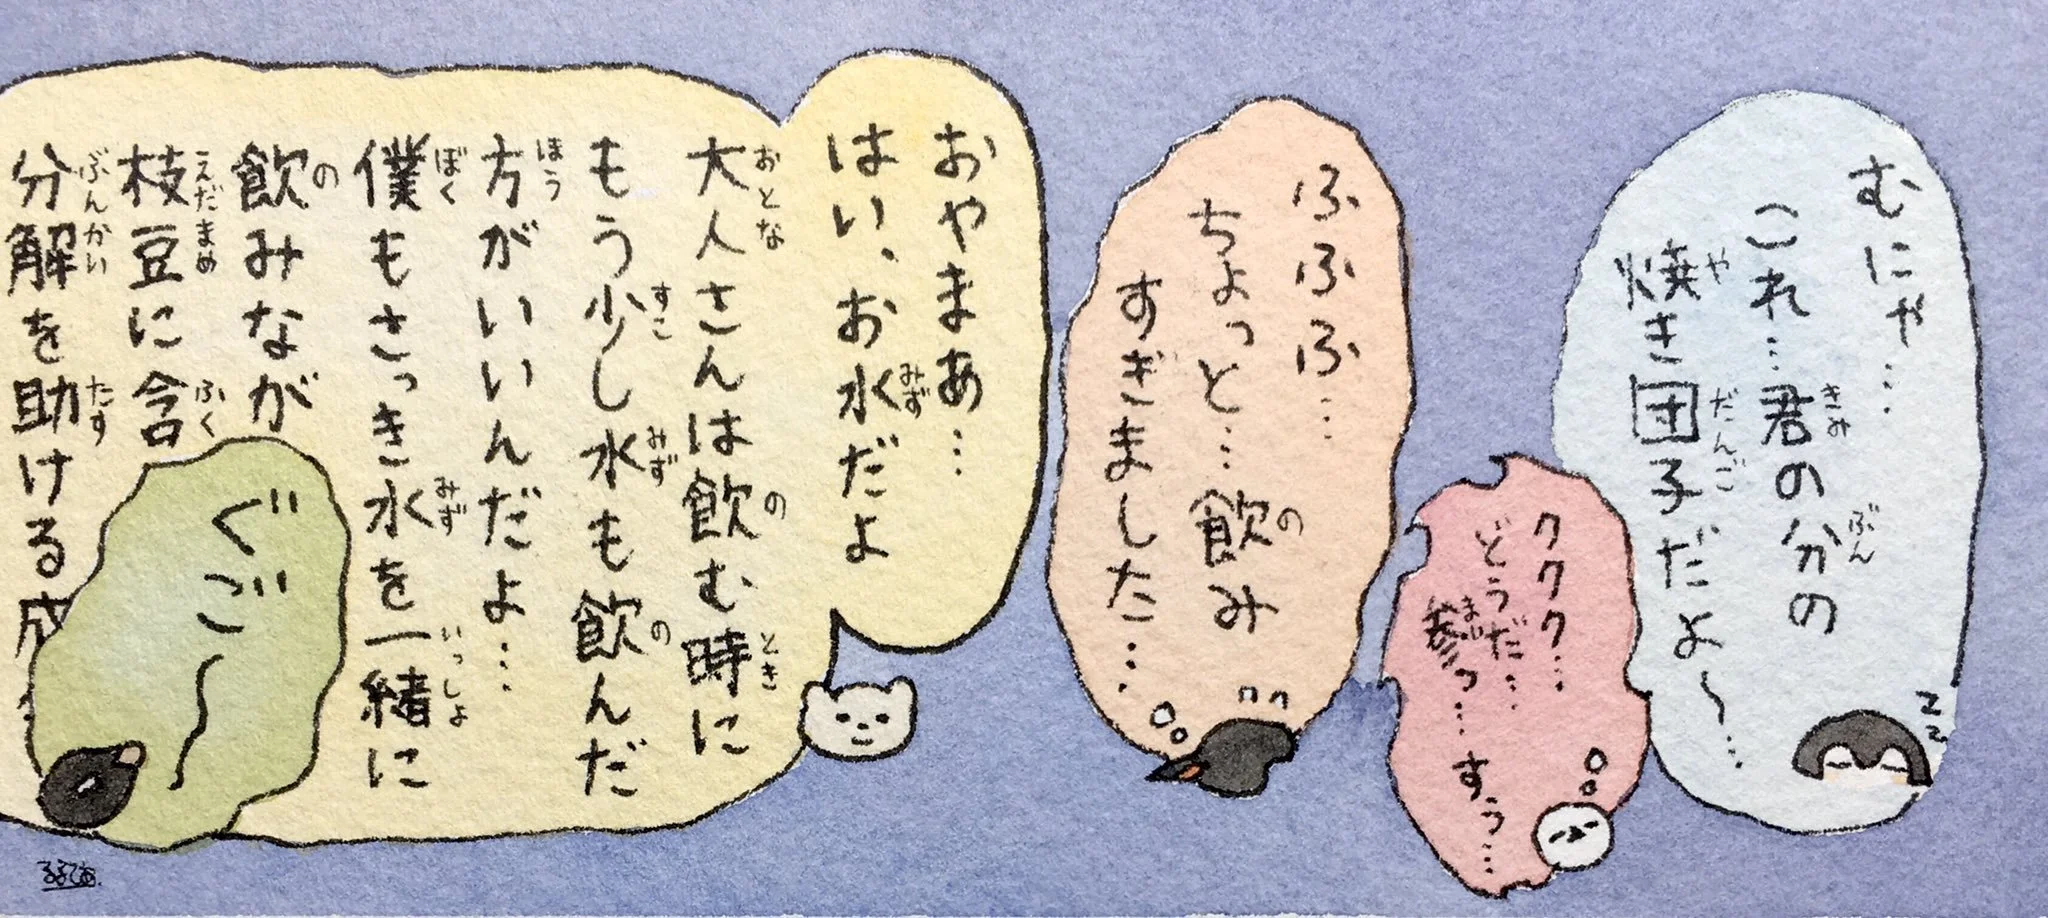 むにゃ…
これ…君の分の
焼き団子だよ〜…
ククク…
どうだ…
参っ…すう…
ふふふ…
ちょっと…飲み
すぎました…
おやまあ…
はい、お水だよ
大人さんは飲む時に
もう少し水も飲んだ
方がいいんだよ…
僕もさっき水を一緒に
飲みなが
枝豆に含
分解を助ける成
ぐご〜
るるてあ